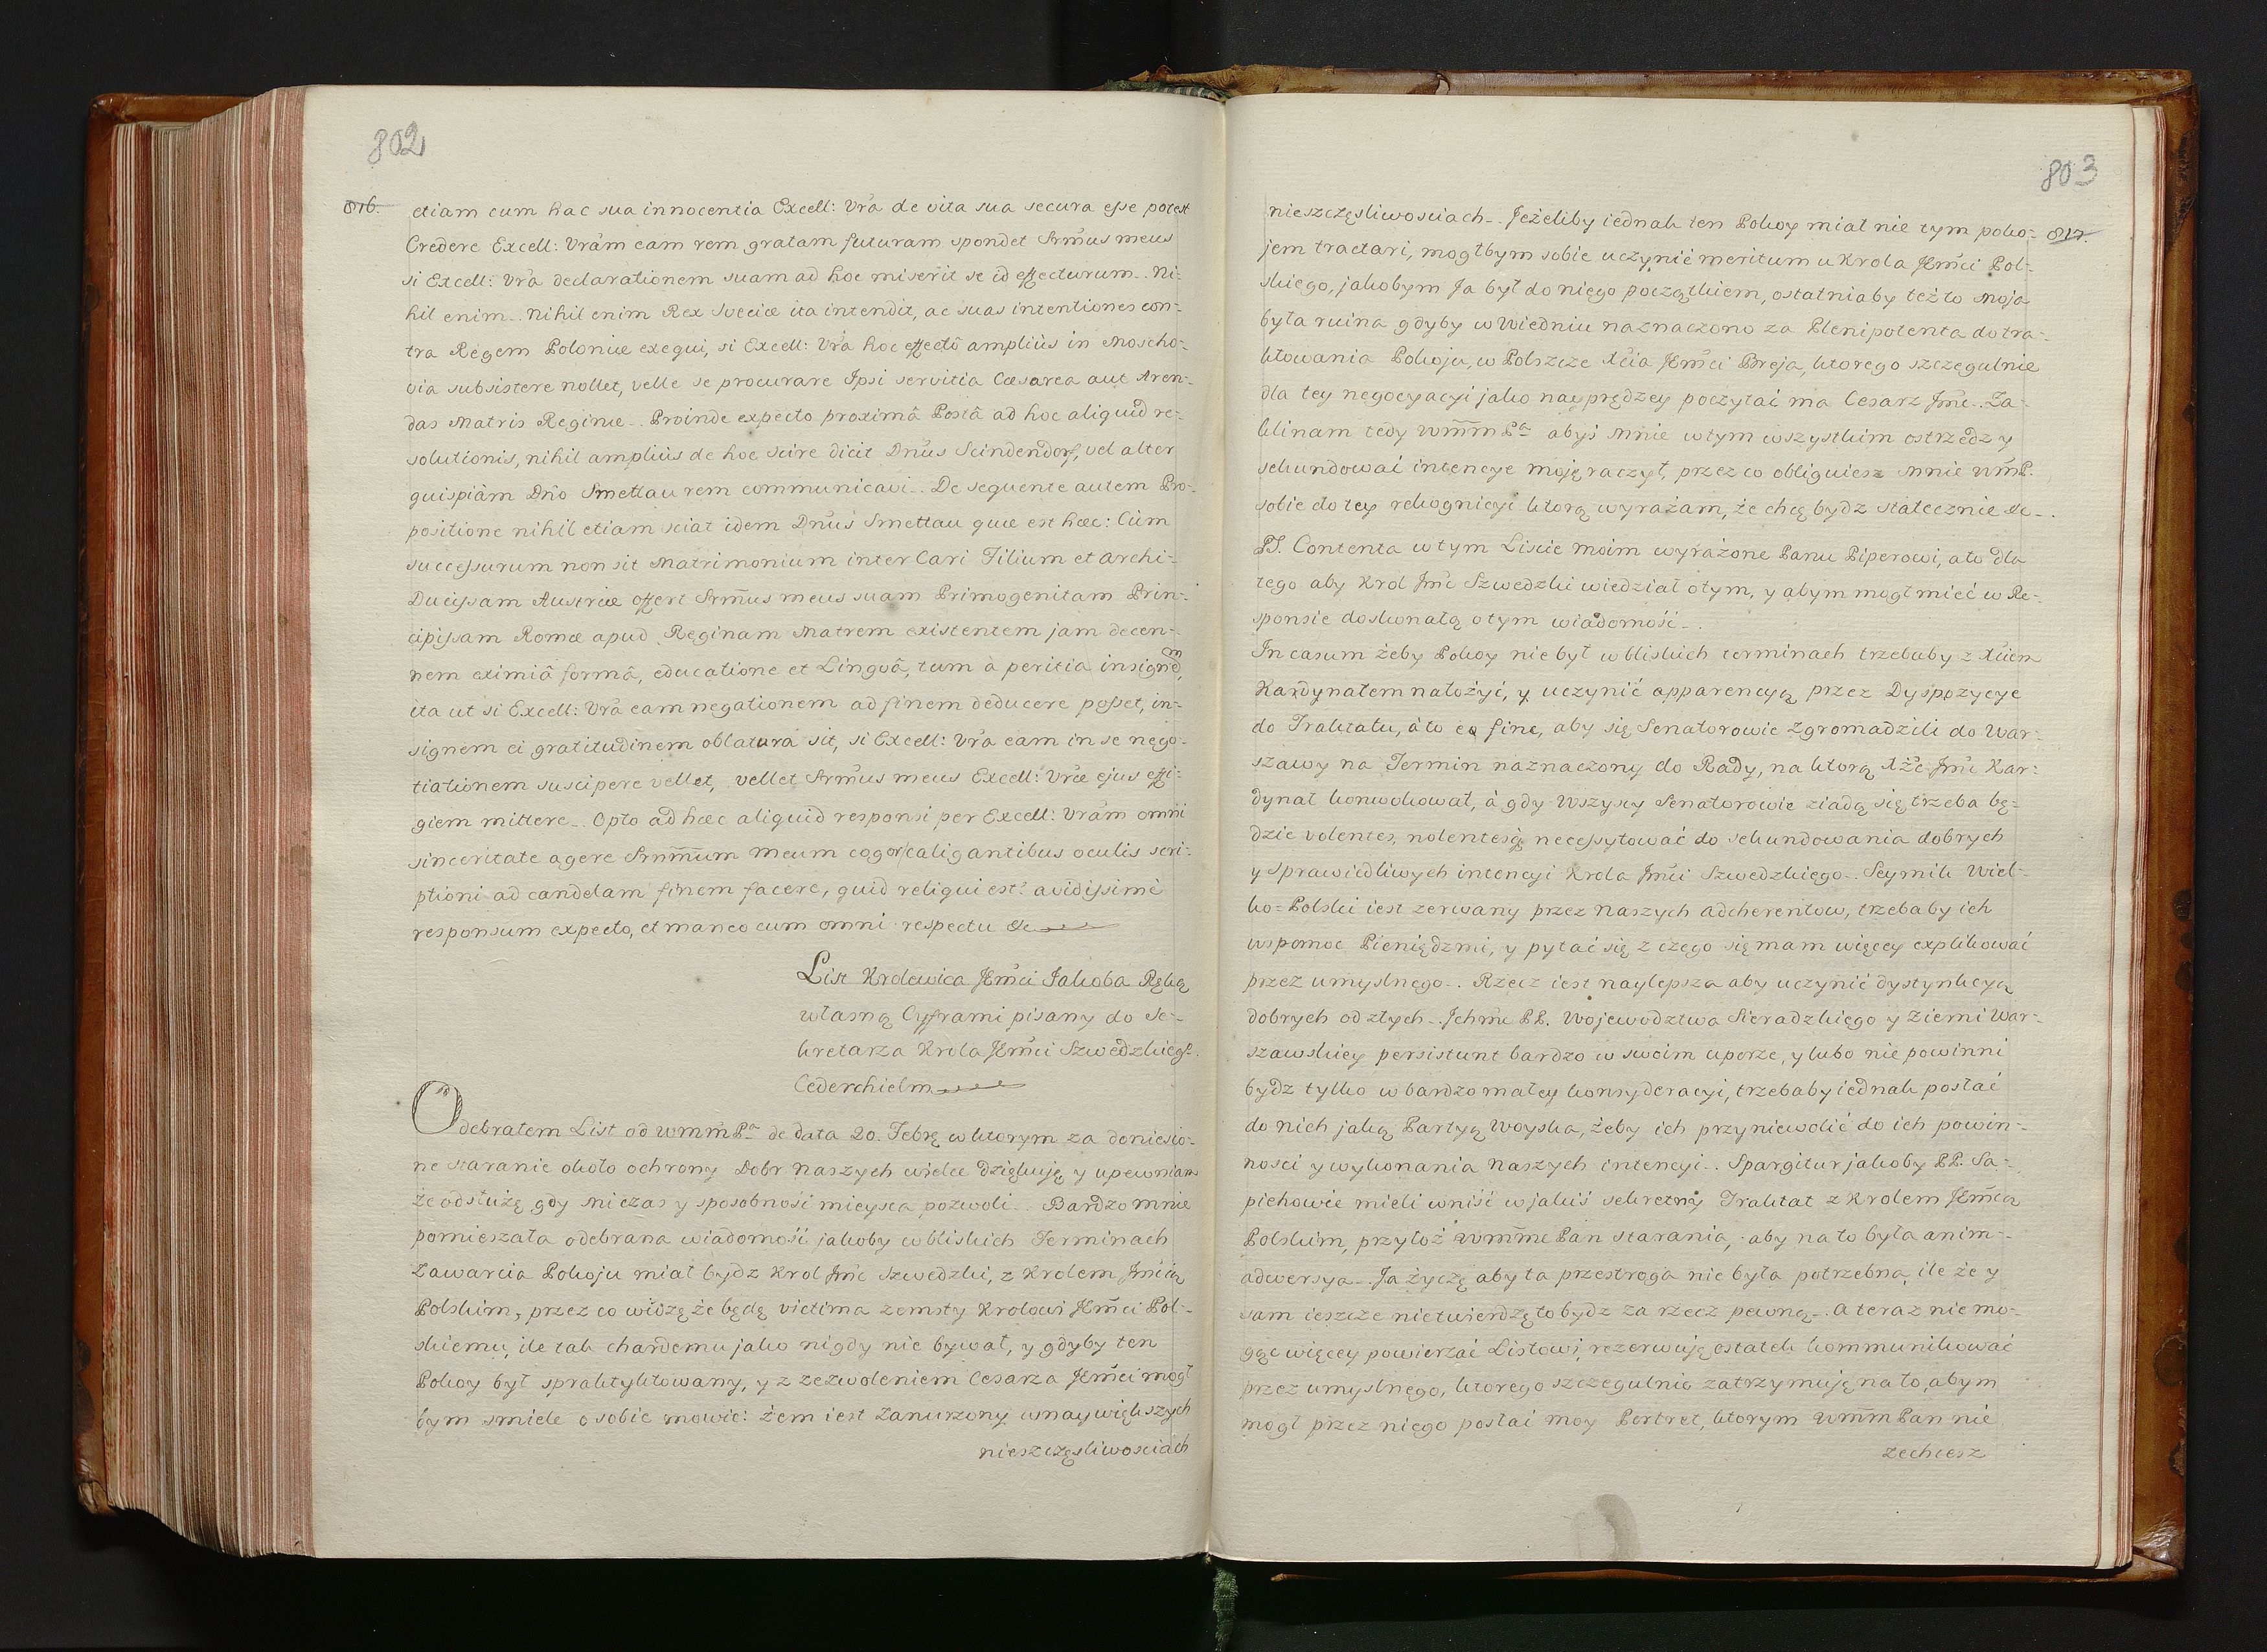 802
816. etiam cum hac sua innocentia Excell: Vr̃a de vita sua secura esse potest
Credere Excell: Vrãm eam rem gratam futuram spondet Srm̃us meus
si Excell: Vr̃a declarationem suam ad hoc miserit se id effecturum.. Ni-
hil enim.. Nihil enim Rex Sveciæ ita intendit, ac suas intentiones con-
tra Regem Poloniæ exequi, si Excell: Vr̃a hoc effectô ampliùs in Moscho-
via subsistere nollet, velle se procurare Ipsi servitia Cæsarea aut Aren-
das Matris Reginæ.. Proinde expecto proximâ Postâ ad hoc aliquid re-
solutionis, nihil ampliùs de hoc scire dicit Dñus Scindendorf, vel alter
quispiàm Dño Smettau rem communicavi.. De sequente autem Pro-
positione nihil etiam sciat idem Dñus Smettau quæ est hæc: Cùm
successurum non sit Matrimonium inter Cari Filium et Archi-
Ducissam Austriæ offert Srm̃us meus suam Primogenitam Prin-
cipissam Romæ apud Reginam Matrem existentem jam decen-
nem eximiâ formâ, educatione et Linguâ, tum à peritia insignem,
ita ut si Excell: Vr̃a eam negationem ad finem deducere posset, in-
signem ei gratitudinem oblatura sit, si Excell: Vr̃a eam in se nego-
tiationem suscipere vellet, vellet Srm̃us meus Excell: Vr̃æ ejus effi-
giem mittere.. Opto ad hæc aliquid responsi per Excell: Vrãm omni
sinceritate agere Srm̃um Meum cogor caligantibus oculis scri-
ptioni ad candelam finem facere, quid reliqui est? avidissimè
responsum expecto, et maneo cum omni respectu &c
List Krolewica JEm̃ci Jakoba Ręką
własną Cyframi pisany do Se-
kretarza Krola JEm̃ci Szwedzkiego.
Cederchielm
Odebrałem List od Wmm̃Pa de data 20. Febrę w ktorym za doniesio-
ne staranie około ochrony Dobr naszych wielce dziękuję y upewniam
że odsłużę gdy mi czas y sposobność mieysca pozwoli.. Bardzo mnie
pomieszała odebrana wiadomość jakoby w bliskich Terminach
Zawarcia Pokoju miał bydz Krol Jm̃ć Szwedzki, z Krolem Jm̃cią
Polskim, przez co widzę że będę victima zemsty Krolowi JEm̃ci Pol-
skiemu, ile tak chardemu jako nigdy nie bywał, y gdyby ten
Pokoy był spraktyktowany, y z zezwoleniem Cesarza JEm̃ci mogł
bym smiele o sobie mowić: żem iest Zanurzony w naywiększych
nieszczęsliwosciach
803
nieszczęsliwosciach.. Jeżeliby iednak ten Pokoy miał nie tym poko- 817.
jem tractari, mogłbym sobie uczynić meritum u Krola JEm̃ci Pol-
skiego, jakobym Ja był do niego początkiem, ostatniaby też to moja
była ruina gdyby w Wiedniu naznaczono za Plenipotenta do tra-
ktowania Pokoju, w Polszcze Xcia JEm̃ci Breja, ktorego szczegulnie
dla tey negocyacyi jako nayprędzey poczytać ma Cesarz Jm̃ć.. Za-
klinam tedy Wmm̃Pa abyś mnie w tym wszystkim ostrzedz y
sekundować intencye moję raczył, przez co obliguiesz mnie Wm̃P.
sobie do tey rekognicyi ktorą wyrażam, że chcę bydz statecznie &c..
PS. Contenta w tym Liscie moim wyrażone Panu Piperowi, a to dla
tego aby Krol Jm̃ć Szwedzki wiedział o tym, y abym mogł mieć w Re-
sponsie doskonałą o tym wiadomość..
In casum żeby Pokoy nie był w bliskich terminach trzebaby z Xciem
Kardynałem nałożyć, y uczynić apparencyą przez Dyspozycye
do Traktatu, à to eo fine, aby się Senatorowie zgromadzili do War-
szawy na Termin naznaczony do Rady, na ktorą Xże Jm̃ć Kar-
dynał konwokował, à gdy wszyscy Senatorowie ziadą się, trzeba bę-
dzie volentes, nolentesq; necessytować do sekundowania dobrych
y sprawiedliwych intencyi Krola Jm̃ci Szwedzkiego.. Seymik Wiel-
ko=Polski iest zerwany przez naszych adcherentow, trzebaby ich
wspomoc Pieniędzmi, y pytać się z czego się mam więcey explikować
przez umyslnego.. Rzecz iest naylepsza aby uczynić dystynkcyą
dobrych od złych.. Ichm̃ć PP. Wojewodztwa Sieradzkiego y Ziemi War-
szawskiey persistunt bardzo w swoim uporze, y lubo nie powinni
bydz tylko w bardzo małey konsyderacyi, trzebaby iednak posłać
do nich jaką Partyą Woyska, żeby ich przyniewolić do ich powin-
ności y wykonania naszych intencyi.. Spargitur jakoby PP. Sa-
piehowie mieli wniść w jakiś sekretny Traktat z Krolem JEm̃cią
Polskim, przyłoż Wmm̃ć Pan starania, aby na to była anim-
adwersya.. Ja życzę aby ta przestroga nie była potrzebna, ile że y
sam ieszcze nie twierdzę to bydz za rzecz pewną.. A teraz nie mo-
gąc więcey powierzać Listowi, rezerwuję ostatek kommunikować
przez umyslnego, ktorego szczegulnie zatrzymuję na to, abym
mogł przez niego posłać moy Portret, ktorym Wmm̃ Pan nie
zechcesz